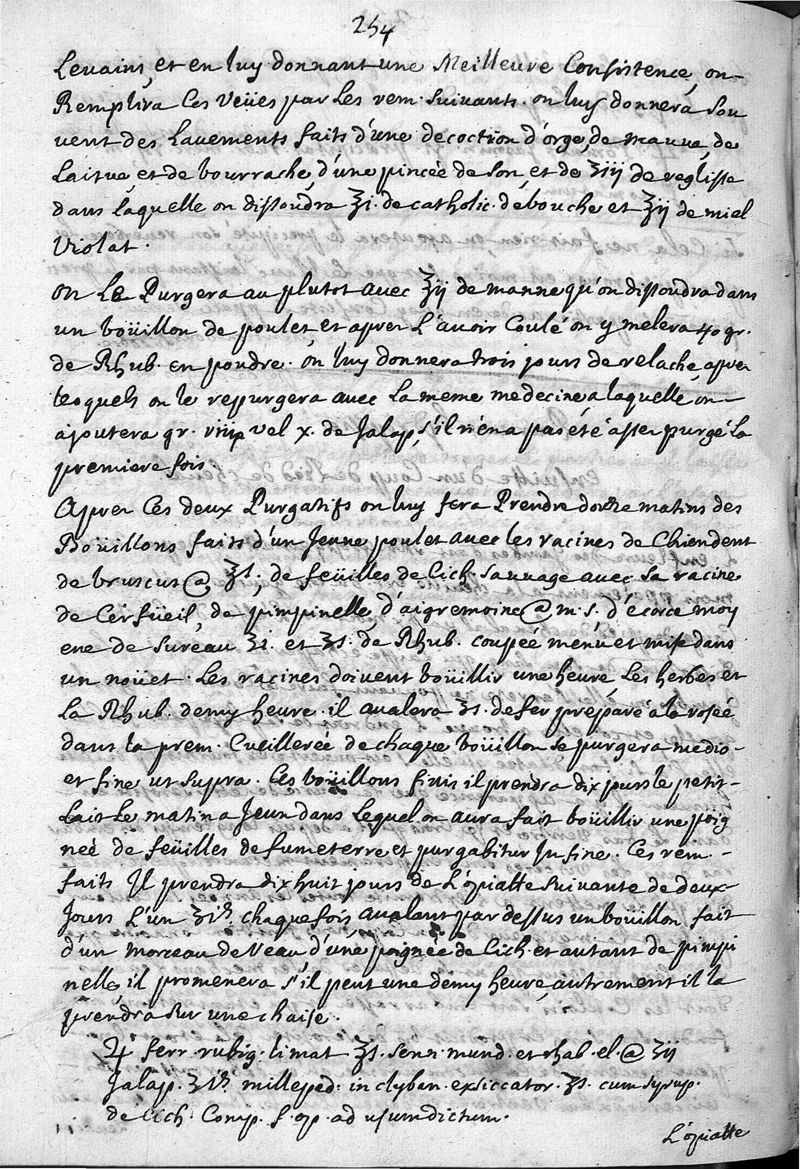 254
Levains, et en luy donnant une Meilleure Consistence, on
Remplira Ces Veües par Les rem. Suivants. on luy donnera Sou
vent des Lavements faits d'une decoction d'orge, de mauve, de
Laitue et de bourrache, d'une pincée de Son et de ʒiij de reglisse
dans laquelle on dissoudra ℥i. de catholic. de bouche et ℥ij de miel
Violat.
on Le Purgera au plutot avec ℥ij de manne qu'on dissoudra dans
un boüillon de poulet et apres L'avoir Coulé on y melera 40 gr.
de Rhub. en poudre. on luy donnera trois jours de relache, apres
lesquels on le repurgera avec La meme medecine a laquelle on
ajoutera gr. viij vel x. de Jalap, s'il n'en a pas été assez purgé La
premiere fois
Apres Ces deux Purgatifs on luy fera Prendre douze matins des
Boüillons faits d'un Jeune poulet avec les racines de Chiendent
de bruscus @ ℥s. de feüilles de Cich. Sauvage avec Sa racine
de Cerfüeil, de pimpinelle, d'aigremoine @ m. s. d'écorce moy
ene de Sureau ʒi. et ʒs. de Rhub. coupée menu et mise dans
un noüet. Les racines doivent boüillir une heure, Les herbes et
La Rhub. demy heure. il avalera ʒs. de fer préparé a la rosée
dans la prem. Cueillerée de chaque boüillon se purgera medio
et fine ut supra. Ces boüillons finis il prendra dix jours le petit
Lait Le matin a Jeun dans Lequel on aura fait boüillir une poig
neé de feüilles de fumeterre et purgabitur In fine. Ces rem.
faits Il prendra dix huit jours de L'opiatte Suivante de deux
Jours L'un ʒis. chaque fois avalant par dessus un boüillon fait
d'un morceau de Veau d'une poignée de Cich. et autant de pimpi
nelle, il promenera s'il peut une demy heure, autrement il la
prendra Sur une chaise.
♃ ferr. rubig. limat ℥s. senn. mund. et rhab. el. @ ʒij
Jalap. ʒis. milleped. in clyban. exsiccator. ʒs. cum syrup.
de Cich. Comp. f. op. ad usum dictum.
L'opiatte